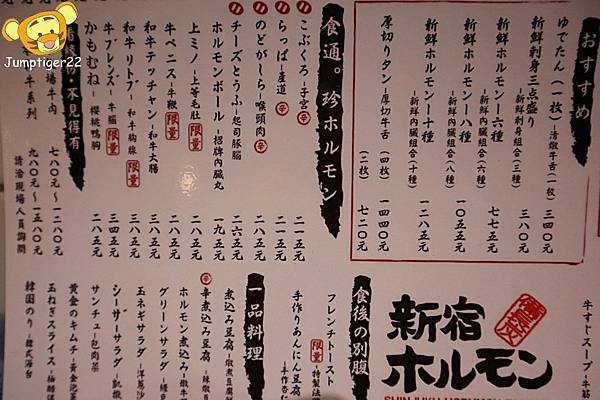 Jumptiger22
おすすめ
ゆでたん(一枚)-清燉牛舌(一枚) 三四〇元
新鮮刺身三点盛り-新鮮刺身組合(三種) 三八〇元
新鮮ホルモン-六種-新鮮內臟組合(六種) 七七五元
新鮮ホルモン-八種-新鮮內臟組合(八種) 一〇五五元
新鮮ホルモン-十種-新鮮內臟組合(十種) 一二八五元
厚切りタン-厚切牛舌 (四枚) 一四四〇元
(二枚) 七二〇元
食通。珍ホルモン
こぶくろ-子宮 辛 二一五元
らっぱ-產道 辛 二一五元
のどがしら-喉頭肉 辛 二八五元
チーズとうふ-起司豚腦 二六五元
ホルモンボール-招牌內臟丸 一九五元
上ミノ-上等毛肚 限量 二八五元
牛ペニス-牛鞭 限量 二八五元
和牛テッチャン-和牛大腸 三八五元
和牛リトブ-和牛胸線 限量 三四五元
牛ブレンズ-牛腦 限量 二八五元
かもむね-櫻桃鴨胸
不見得有
牛肉 七八〇元~一二八〇元
牛系列 九八〇元~一五八〇元
請洽現場人員詢問
新宿ホルモン
牛すじスープ-牛筋
食後の別腹
フレンチトースト
限量-特製法
手作りあんにん豆腐
-手作杏仁
一品料理
煮込み豆腐-燉煮豆腐
辛 辛煮込み豆腐-辣燉豆
ホルモン煮込み-燉牛
グリーンサラダ-綠
玉ネギサラダ-洋蔥沙
シーザーサラダ-凱撒
サンチュ-包肉菜
黄金のキムチ-黃金泡菜
玉ねぎスライス
韓国のり-韓式海苔